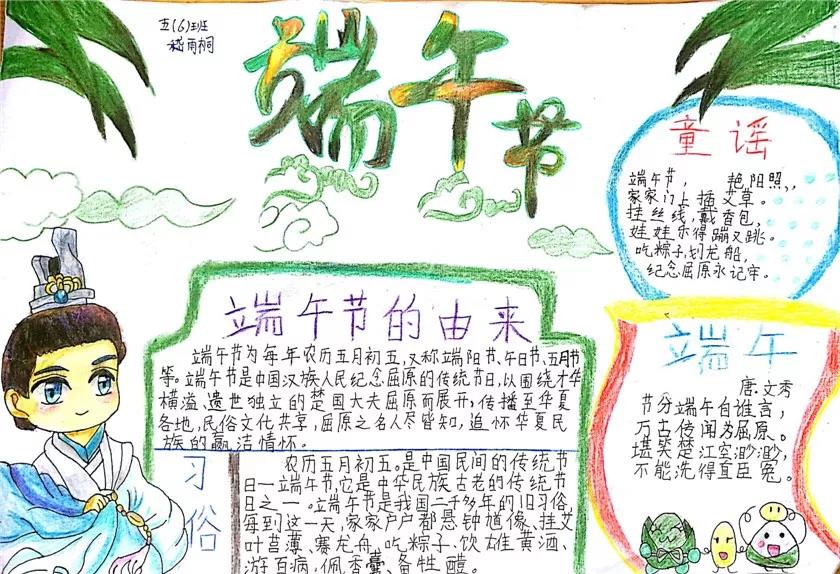 五(6)班
嵇雨桐
端午节
童谣
端午节， 艳阳照，
家家门上插艾草。
挂丝线，戴香包，
娃娃乐得蹦又跳。
吃粽子，划龙船，
纪念屈原永记牢。
端午节的由来
端午节为每年农历五月初五，又称端阳节、午日节、五月节
等。端午节是中国汉族人民纪念屈原的传统节日，以围绕才华
横溢、遗世独立的楚国大夫屈原而展开，传播至华夏
各地，民俗文化共享，屈原之名人尽皆知，追怀华夏民
族的高洁情怀。
端午
唐：文秀
节分端午自谁言，
万古传闻为屈原。
堪笑楚江空渺渺，
不能洗得直臣冤。
习俗
农历五月初五。是中国民间的传统节
日一端午节，它是中华民族古老的传统节
日之一。端午节是我国二千多年的旧习俗
每到这一天，家家户户都悬钟馗像、挂艾
叶菖薄、赛龙舟、吃粽子、饮雄黄酒、
游百病，佩香囊、备牲醴。